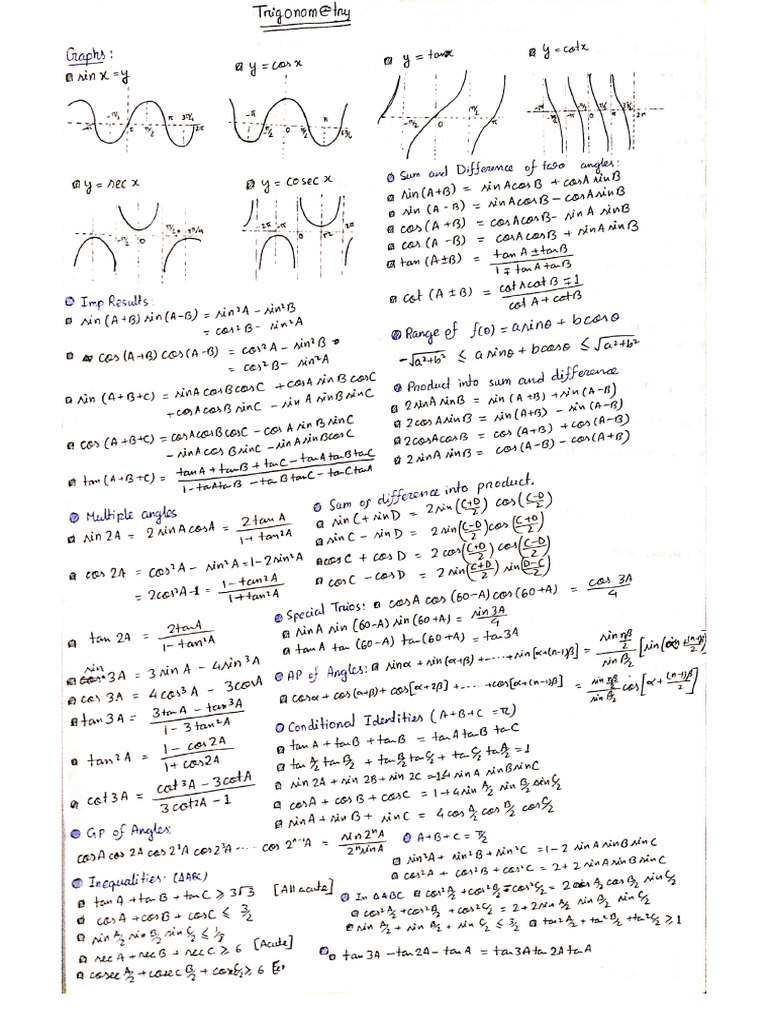 Trigonometry
Graphs:
sin x = y
y = cos x
y = tanx
y = cotx
-π -π/2 0 π/2 π 3π/2 2π
y = sec x
y = cosec x
Sum and Difference of two angles:
sin(A+B) = sinAcosB + cosAsinB
sin (A-B) = sinAcosB - cosAsinB
cos (A+B) = cosAcosB - sinA sinB
cos (A-B) = cosAcosB + sinAsinB
tan (A±B) = tanA ± tanB / 1∓tanAtanB
cot (A±B) = cotAcotB∓1 / cotA+cotB
Imp Results:
sin(A+B)sin(A-B) = sin²A - sin²B
= cos²B - sin²A
cos(A+B)cos(A-B) = cos²A - sin²B
= cos²B - sin²A
sin (A+B+C) = sinAcosBcosC + cosAsinBcosC
+ cosAcosBsinC - sinAsinBsinC
cos (A+B+C) = cosAcosBcosC - cosAsinBsinC
- sinAcosBsinC - sinAsinBcosC
tan(A+B+C) = tanA + tanB + tanC - tanAtanBtanC / 1-tanAtanB - tanBtanC - tanCtanA
Range of f(θ) = asinθ + bcosθ
-√a²+b² ≤ asinθ + bcosθ ≤ √a²+b²
Product into sum and difference
2sinAsinB = sin(A+B) + sin(A-B)
2cosAsinB = sin(A+B) - sin(A-B)
2cosAcosB = cos(A+B) + cos(A-B)
2sinA sinB = cos(A-B) - cos(A+B)
Multiple angles
sin 2A = 2sinAcosA = 2tanA / 1+tan²A
cos 2A = cos²A - sin²A = 1-2sin²A
= 2cos²A-1 = 1-tan²A / 1+tan²A
tan 2A = 2tanA / 1-tan²A
sin 3A = 3sinA - 4sin³A
cos 3A = 4cos³A - 3cosA
tan3A = 3tanA - tan³A / 1-3tan²A
tan²A = 1-cos2A / 1+cos2A
cot3A = cot³A - 3cotA / 3cot²A - 1
Sum or difference into product.
sinC + sinD = 2sin(C+D/2) cos(C-D/2)
sinC - sinD = 2sin(C-D/2)cos(C+D/2)
cosC + cosD = 2cos(C+D/2)cos(C-D/2)
cosC - cosD = 2sin(C+D/2)sin(D-C/2)
Special Trios: cosA cos(60-A)cos(60+A) = cos 3A / 4
sinA sin(60-A) sin(60+A) = sin3A / 4
tanA tan(60-A) tan(60+A) = tan3A
AP of Angles: sinα + sin(α+β) + ..... + sin[α+(n-1)β] = sin nβ/2 / sin β/2 [sin(α+(n-1)β/2)]
cosα + cos(α+β) + cos[α+2β] + ..... + cos[α+(n-1)β] = sin nβ/2 / sin β/2 cos[α+(n-1)β/2]
Conditional Identities (A+B+C = π)
tanA + tanB + tanB = tanA tanB tanC
tan A/2 tan B/2 + tan B/2 tan C/2 + tan C/2 tan A/2 = 1
sin 2A + sin 2B + sin 2C = 4 sinA sinBsinC
cosA + cosB + cosC = 1 + 4 sin A/2 sin B/2 sin C/2
sinA + sinB + sinC = 4 cos A/2 cos B/2 cos C/2
GP of Angles:
cosA cos 2A cos 2²A cos 2³A ..... cos 2ⁿ⁻¹A = sin 2ⁿA / 2ⁿsinA
A+B+C = π/2
sin²A + sin²B + sin²C = 1 - 2 sinA sinB sinC
cos²A + cos²B + cos²C = 2 + 2 sinA sinB sinC
Inequalities: (ΔABC)
tanA + tanB + tanC ≥ 3√3 [All acute]
cosA + cosB + cosC ≤ 3/2
sin A/2 sin B/2 sin C/2 ≤ 1/8
secA + secB + secC ≥ 6 [Acute]
cosec A/2 + cosec B/2 + cosec C/2 ≥ 6
In ΔABC cos² A/2 + cos² B/2 - cos² C/2 = 2cos A/2 cos B/2 sin C/2
cos² A/2 + cos² B/2 + cos² C/2 = 2 + 2sin A/2 sin B/2 sin C/2
sin A/2 + sin B/2 + sin C/2 ≤ 3/2 tan² A/2 + tan² B/2 + tan² C/2 ≥ 1
tan 3A - tan 2A - tan A = tan3A tan 2A tanA